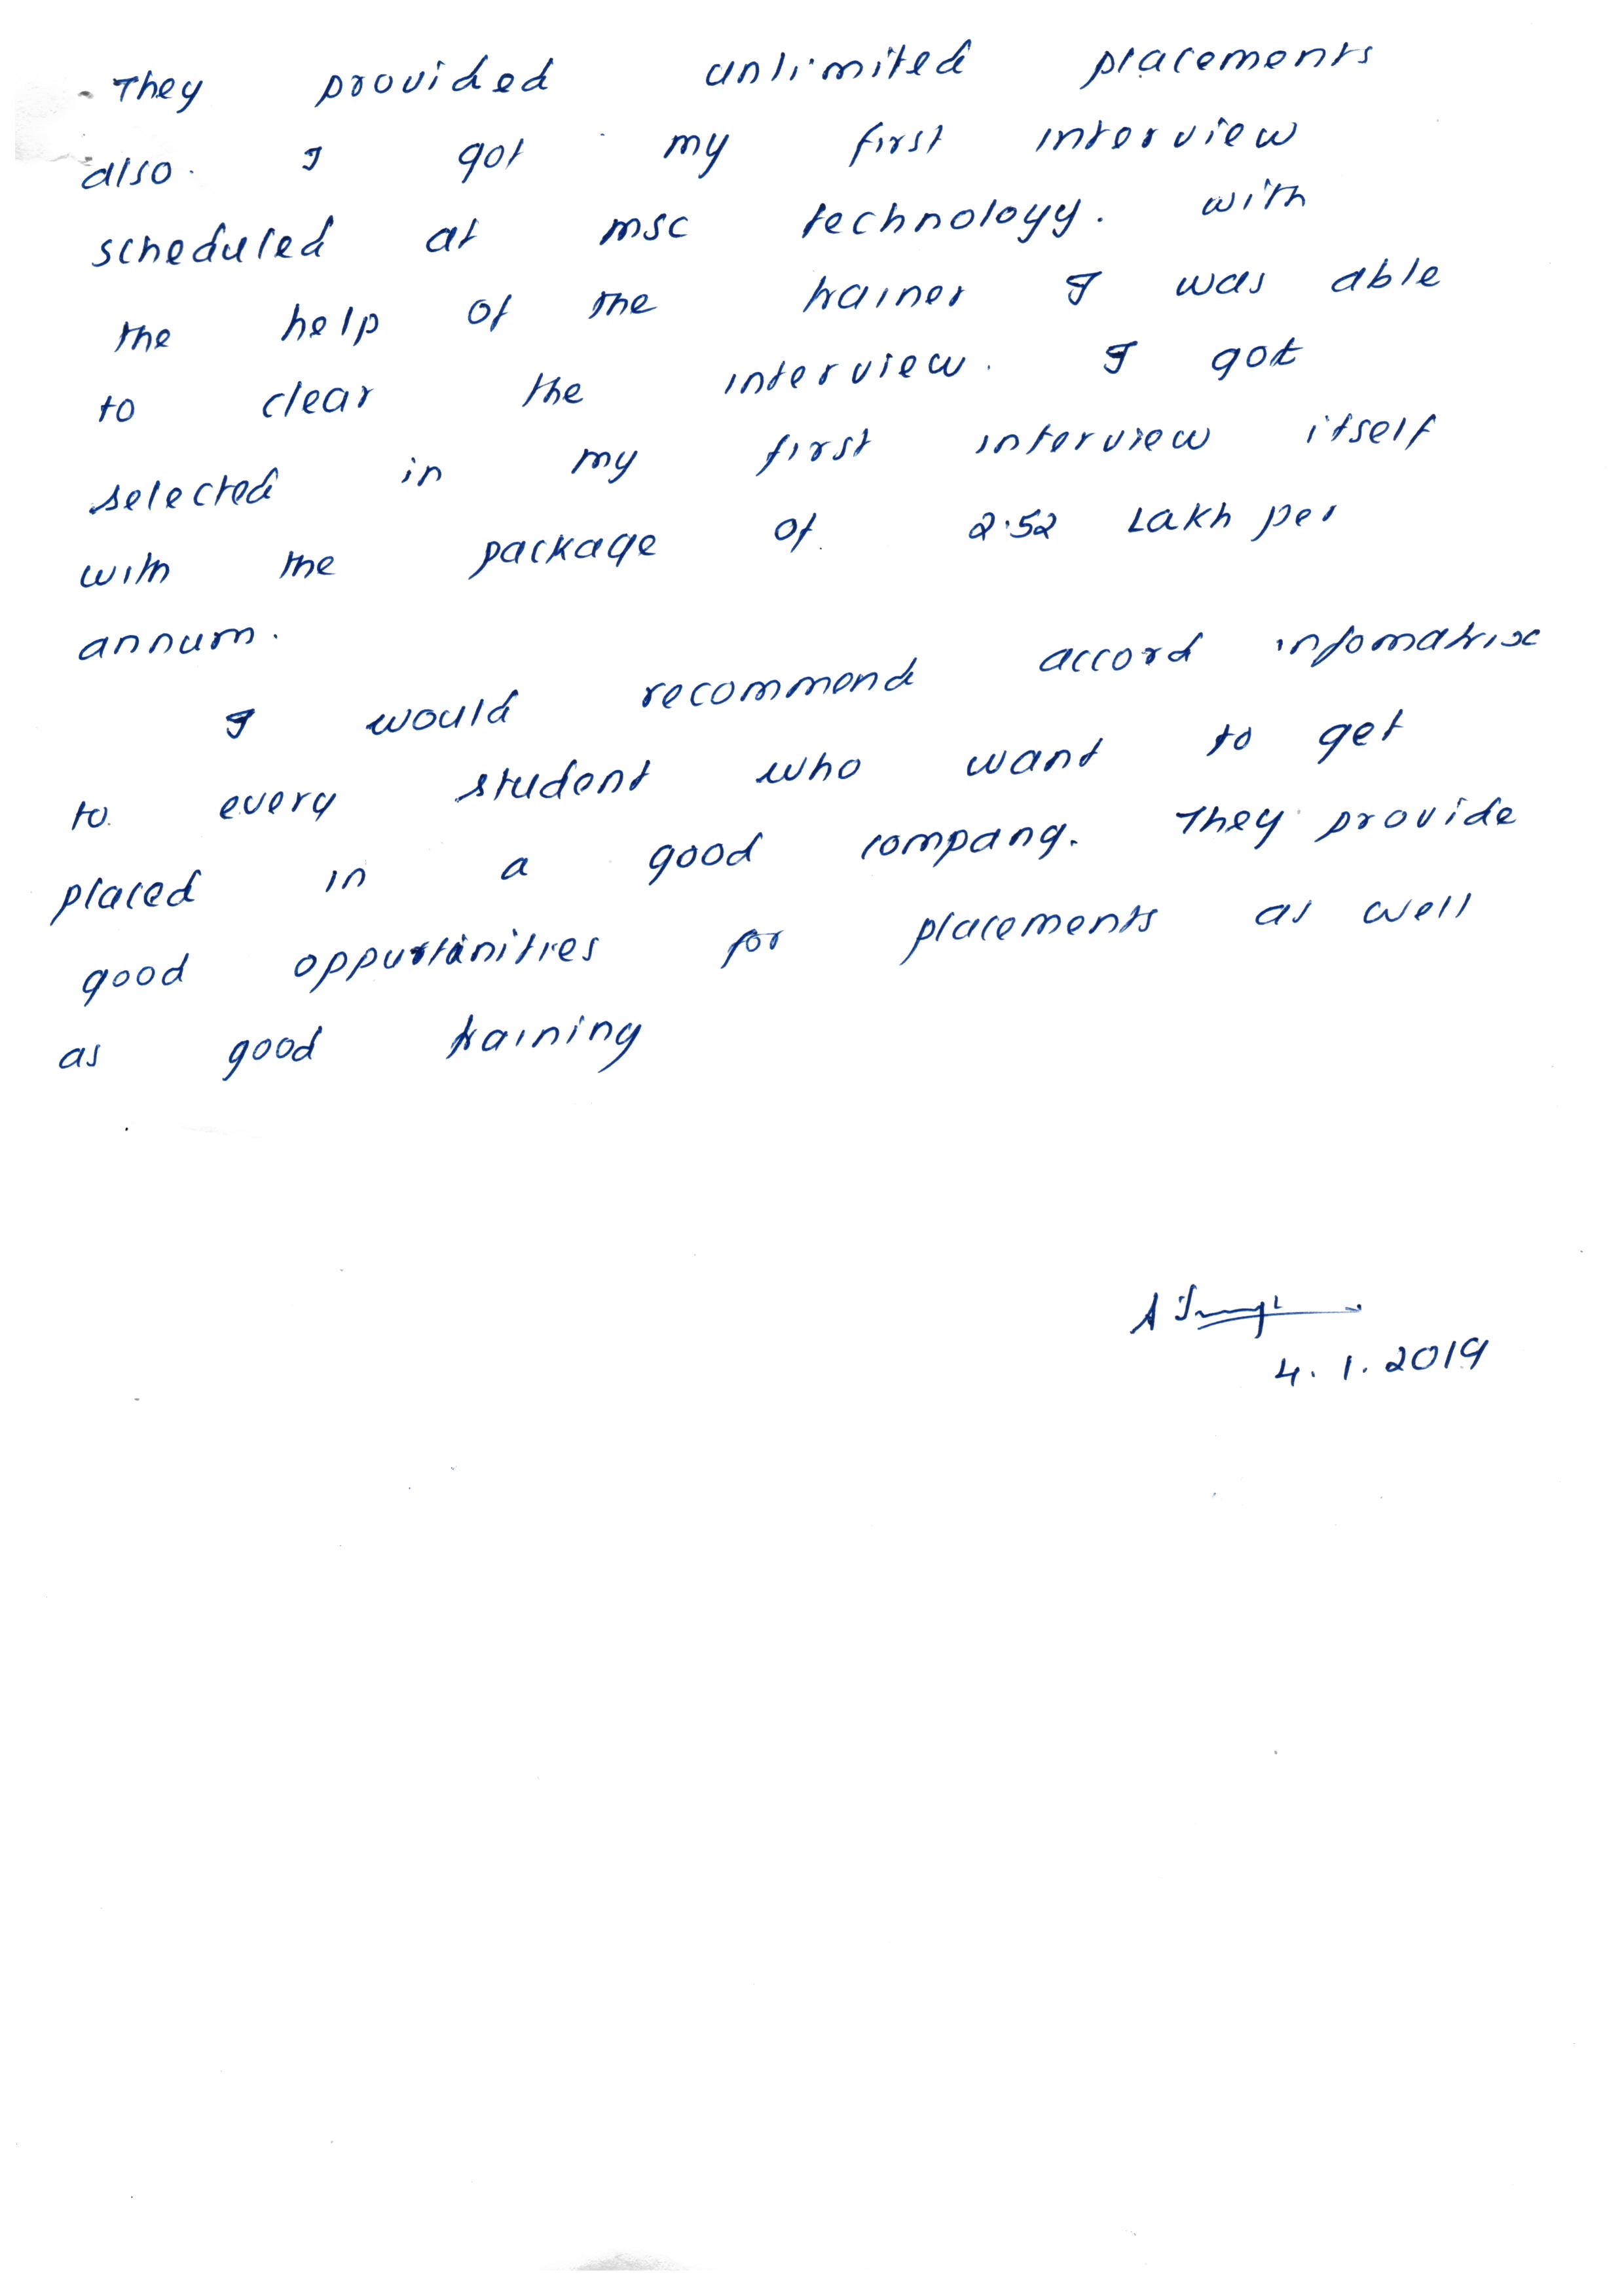 They provided unlimited placements
also. I got my first interview
scheduled at msc technology. with
the help of the trainer I was able
to clear the interview. I got
selected in my first interview itself
with the package of 2.52 Lakh per
annum.
I would recommend accord infomatrix
to every student who want to get
placed in a good company. They provide
good oppurtunities for placements as well
as good training
4.1.2019